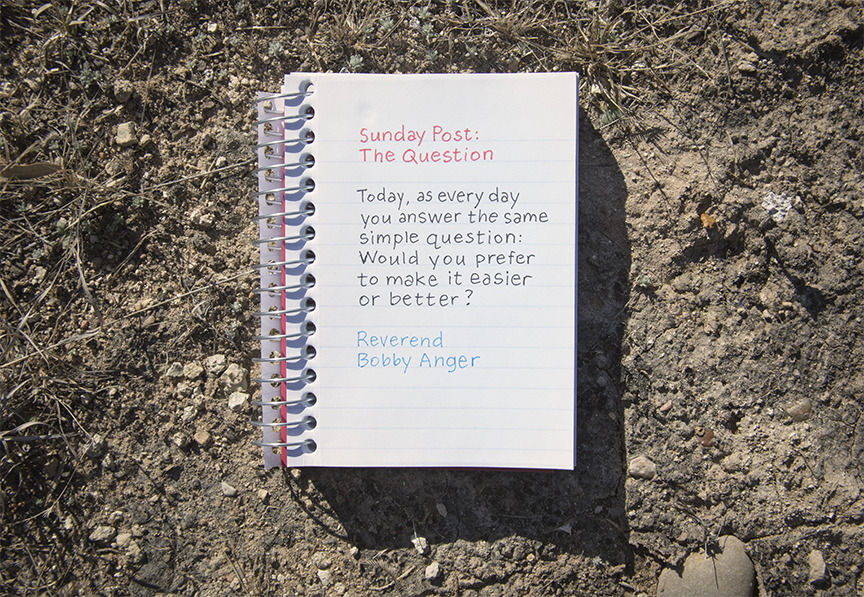 Sunday Post:
The Question
Today, as every day
you answer the same
simple question:
Would you prefer
to make it easier
or better?
Reverend
Bobby Anger